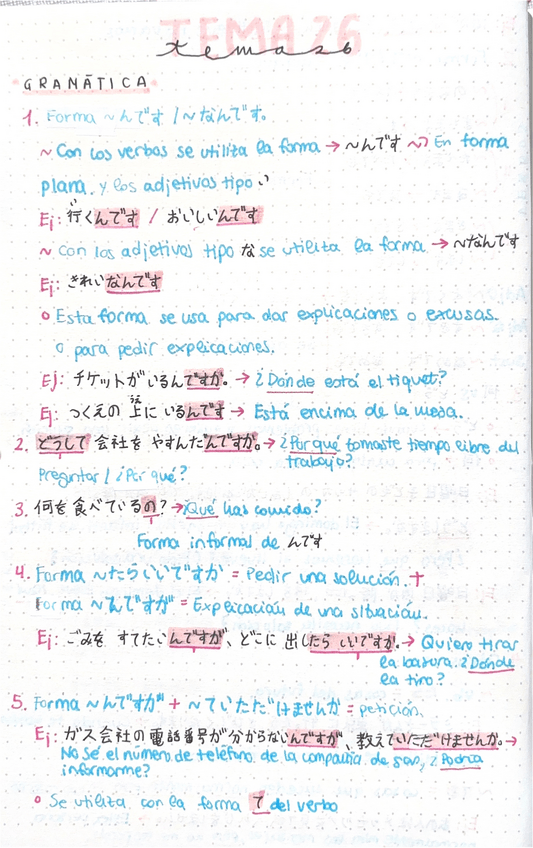 TEMA 26
tema 26
GRAMÁTICA
1. Forma ~んです / ~なんです。
~ Con los verbos se utiliza la forma → ~んです ~> En forma
plana. y los adjetivos tipo い
Ej: 行くんです / おいしいんです
い
~ con los adjetivos tipo な se utiliza la forma → ~なんです
Ej: きれいなんです
o Esta forma se usa para dar explicaciones o excusas.
o para pedir explicaciones.
Ej: チケットがいるんですか。 → ¿Dónde está el tiquet?
Ej: つくえの上にいるんです → Está encima de la mesa.
うえ
2. どうして会社をやすんだんですか。→ ¿Por qué tomaste tiempo libre del
trabajo?
Preguntar / ¿Por qué?
3. 何を食べているの? → ¿Qué has comido?
Forma informal de んです
4. Forma ~たらいいですか = Pedir una solución. +
Forma ~んですが = Explicación de una situación.
Ej: ごみをすてたいんですが、どこに出したらいいですか。→ Quiero tirar
la basura. ¿Dónde
la tiro?
5. Forma ~んですが + ~ていただけませんか = petición.
Ej: ガス会社の電話番号が分からないんですが、教えていただけませんか。→
No sé el número de teléfono de la compañía de gas, ¿Podría
informarme?
o Se utiliza con la forma て del verbo